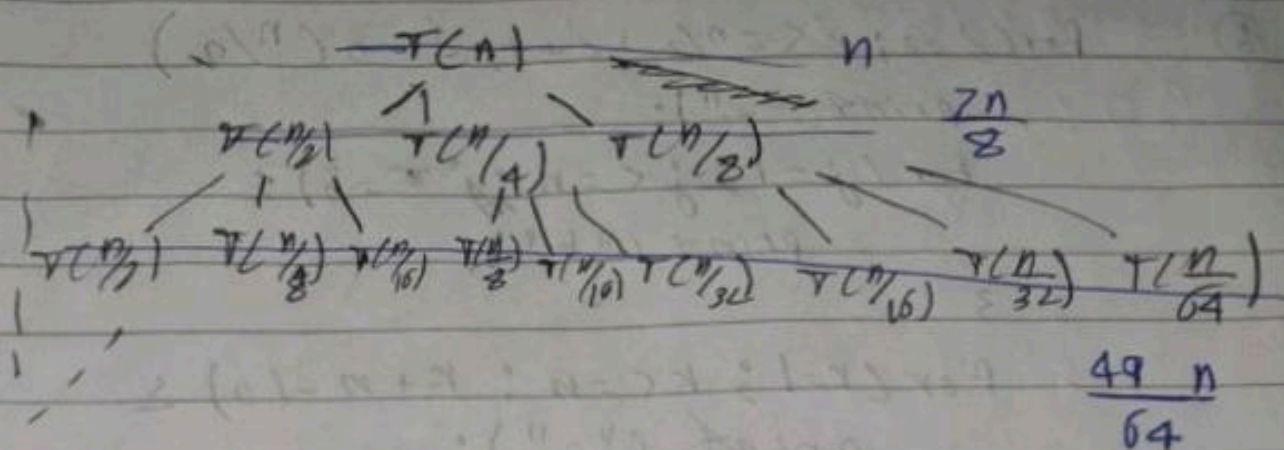 T(n) n
T(n/2) T(n/4) T(n/8) 7n/8
T(n/8) T(n/16) T(n/8) T(n/16) T(n/32) T(n/16) T(n/32) T(n/64)
49 n/64